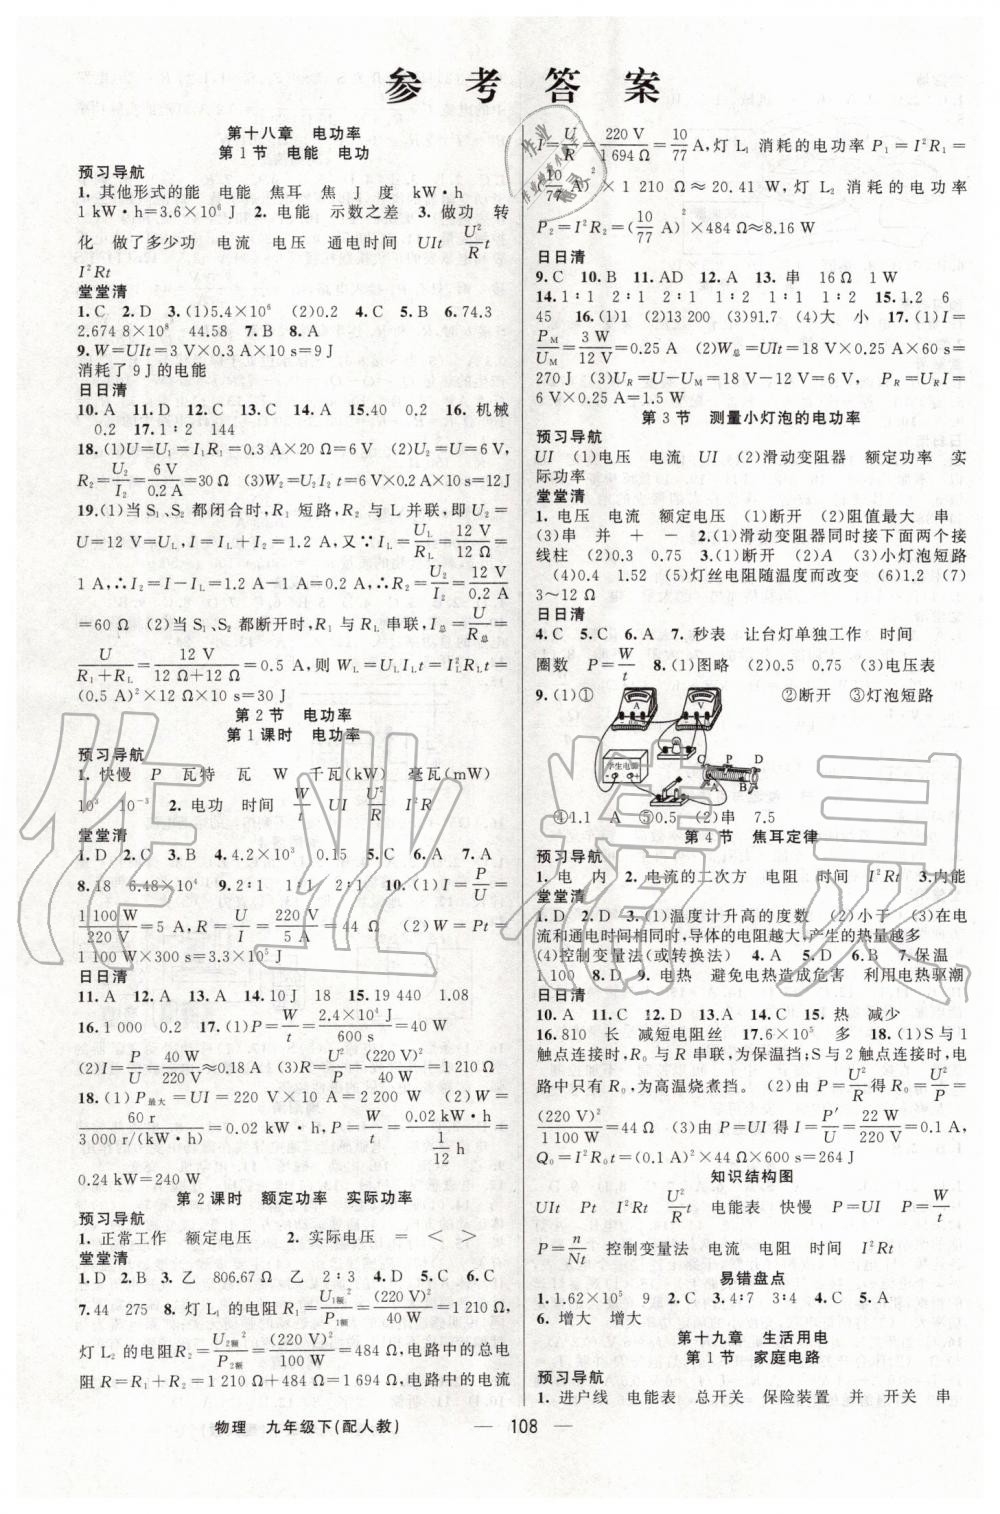 参考答案
第十八章 电功率
第1节 电能 电功
预习导航
1. 其他形式的能 电能 焦耳 焦 J 度 kW·h
1 kW·h=3.6×10⁶ J 2. 电能 示数之差 3. 做功 转
化 做了多少功 电流 电压 通电时间 UIt U²/R t
I²Rt
堂堂清
1. C 2. D 3. (1)5.4×10⁶ (2)0.2 4. C 5. B 6. 74.3
2.674 8×10⁸ 44.58 7. B 8. A
9. W=UIt=3 V×0.3 A×10 s=9 J
消耗了 9 J 的电能
日日清
10. A 11. D 12. C 13. C 14. A 15. 40 0.2 16. 机械
0.2 17. 1∶2 144
18. (1)U=U₁=I₁R₁=0.2 A×20 Ω=6 V (2)U₂=U=6 V,
R₂=U₂/I₂=6 V/0.2 A=30 Ω (3)W₂=U₂I₂t=6 V×0.2 A×10 s=12 J
19. (1)当 S₁、S₂ 都闭合时,R₁ 短路,R₂ 与 L 并联,即 U₂=
U=12 V=U_L,I=I_L+I₂=1.2 A,又∵I_L=U_L/R_L=12 V/12 Ω=
1 A,∴I₂=I-I_L=1.2 A-1 A=0.2 A,∴R₂=U₂/I₂=12 V/0.2 A
=60 Ω (2)当 S₁、S₂ 都断开时,R₁ 与 R_L 串联,I_总=U/R_总=
U/(R₁+R_L)=12 V/(12 Ω+12 Ω)=0.5 A,则 W_L=U_L I_L t=I_L²R_L t=
(0.5 A)²×12 Ω×10 s=30 J
第2节 电功率
第1课时 电功率
预习导航
1. 快慢 P 瓦特 瓦 W 千瓦(kW) 毫瓦(mW)
10³ 10⁻³ 2. 电功 时间 W/t UI U²/R I²R
堂堂清
1. D 2. C 3. B 4. 4.2×10³ 0.15 5. C 6. A 7. A
8. 18 6.48×10⁴ 9. 2∶1 1∶1 2∶1 10. (1)I=P/U=
1 100 W/220 V=5 A,R=U/I=220 V/5 A=44 Ω (2)W=Pt=
1 100 W×300 s=3.3×10⁵ J
日日清
11. A 12. A 13. A 14. 10 J 18 15. 19 440 1.08
16. 1 000 0.2 17. (1)P=W/t=2.4×10⁴ J/600 s=40 W
(2)I=P/U=40 W/220 V≈0.18 A (3)R=U²/P=(220 V)²/40 W=1 210 Ω
18. (1)P_最大=UI=220 V×10 A=2 200 W (2)W=
60 r/3 000 r/(kW·h)=0.02 kW·h,P=W/t=0.02 kW·h/(1/12 h)=
0.24 kW=240 W
第2课时 额定功率 实际功率
预习导航
1. 正常工作 额定电压 2. 实际电压 = < >
堂堂清
1. D 2. B 3. 乙 806.67 Ω 乙 2∶3 4. D 5. C 6. C
7. 44 275 8. 灯 L₁ 的电阻 R₁=U₁额²/P₁额=(220 V)²/40 W=1 210 Ω,
灯 L₂ 的电阻 R₂=U₂额²/P₂额=(220 V)²/100 W=484 Ω,电路中的总电
阻 R=R₁+R₂=1 210 Ω+484 Ω=1 694 Ω,电路中的电流
I=U/R=220 V/1 694 Ω=10/77 A,灯 L₁ 消耗的电功率 P₁=I²R₁=
(10/77 A)²×1 210 Ω≈20.41 W,灯 L₂ 消耗的电功率
P₂=I²R₂=(10/77 A)²×484 Ω≈8.16 W
日日清
9. C 10. B 11. AD 12. A 13. 串 16 Ω 1 W
14. 1∶1 2∶1 2∶1 1∶2 1∶2 1∶2 15. 1.2 6
45 16. (1)1 (2)13 200 (3)91.7 (4)大 小 17. (1)I=
P_M/U_M=3 W/12 V=0.25 A (2)W_总=UIt=18 V×0.25 A×60 s=
270 J (3)U_R=U-U_M=18 V-12 V=6 V P_R=U_R I=
6 V×0.25 A=1.5 W
第3节 测量小灯泡的电功率
预习导航
UI (1)电压 电流 UI (2)滑动变阻器 额定功率 实
际功率
堂堂清
1. 电压 电流 额定电压 (1)断开 (2)阻值最大 串
(3)串 并 + - 2. (1)滑动变阻器同时接下面两个接
线柱 (2)0.3 0.75 3. (1)断开 (2)A (3)小灯泡短路
(4)0.4 1.52 (5)灯丝电阻随温度而改变 (6)1.2 (7)
3~12 Ω
日日清
4. C 5. C 6. A 7. 秒表 让台灯单独工作 时间
圈数 P=W/t 8. (1)图略 (2)0.5 0.75 (3)电压表
9. (1)① ②断开 ③灯泡短路
A V
学生电源
C P D
A B
④1.1 A ⑤0.5 (2)串 7.5
第4节 焦耳定律
预习导航
1. 电 内 2. 电流的二次方 电阻 时间 I²Rt 3. 内能
堂堂清
1. D 2. D 3. (1)温度计升高的度数 (2)小于 (3)在电
流和通电时间相同时,导体的电阻越大,产生的热量越多
(4)控制变量法(或转换法) 4. C 5. D 6. B 7. 保温
1 100 8. D 9. 电热 避免电热造成危害 利用电热驱潮
日日清
10. A 11. C 12. D 13. A 14. C 15. 热 减少
16. 810 长 减短电阻丝 17. 6×10⁵ 多 18. (1)S 与 1
触点连接时,R₀ 与 R 串联,为保温挡;S 与 2 触点连接时,电
路中只有 R₀,为高温烧煮挡。 (2)由 P=U²/R 得 R₀=U²/P=
(220 V)²/1 100 W=44 Ω (3)由 P=UI 得 I=P′/U=22 W/220 V=0.1 A,
Q₀=I²R₀t=(0.1 A)²×44 Ω×600 s=264 J
知识结构图
UIt Pt I²Rt U²/R t 电能表 快慢 P=UI P=W/t
P=n/Nt 控制变量法 电流 电阻 时间 I²Rt
易错盘点
1. 1.62×10⁵ 9 2. C 3. 4∶7 3∶4 4. C 5. A
6. 增大 增大
第十九章 生活用电
第1节 家庭电路
预习导航
1. 进户线 电能表 总开关 保险装置 并 开关 串
物理 九年级下(配人教) — 108 —
作业精灵